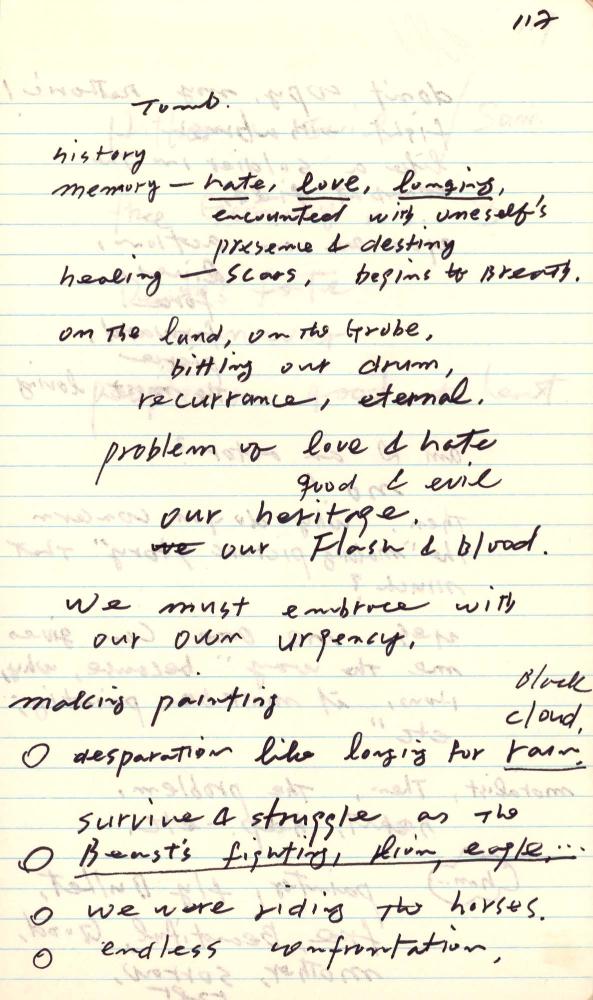 112
Tomb.
history
memory — hate, love, longing,
encounted with oneself's
presence & destiny
healing — scars, begins to Breath.
on the land, on the Grobe,
bitting our drum,
recurrance, eternal.
problem of love & hate
good & evil
our heritage.
we our Flash & Blood.
we must embrace with
our own urgency.
making painting
Black
cloud,
O desparation like longing for rain.
survive & struggle as the
O Beast's fighting, lion, eagle,...
O we were riding the horses.
O endless confrontation,